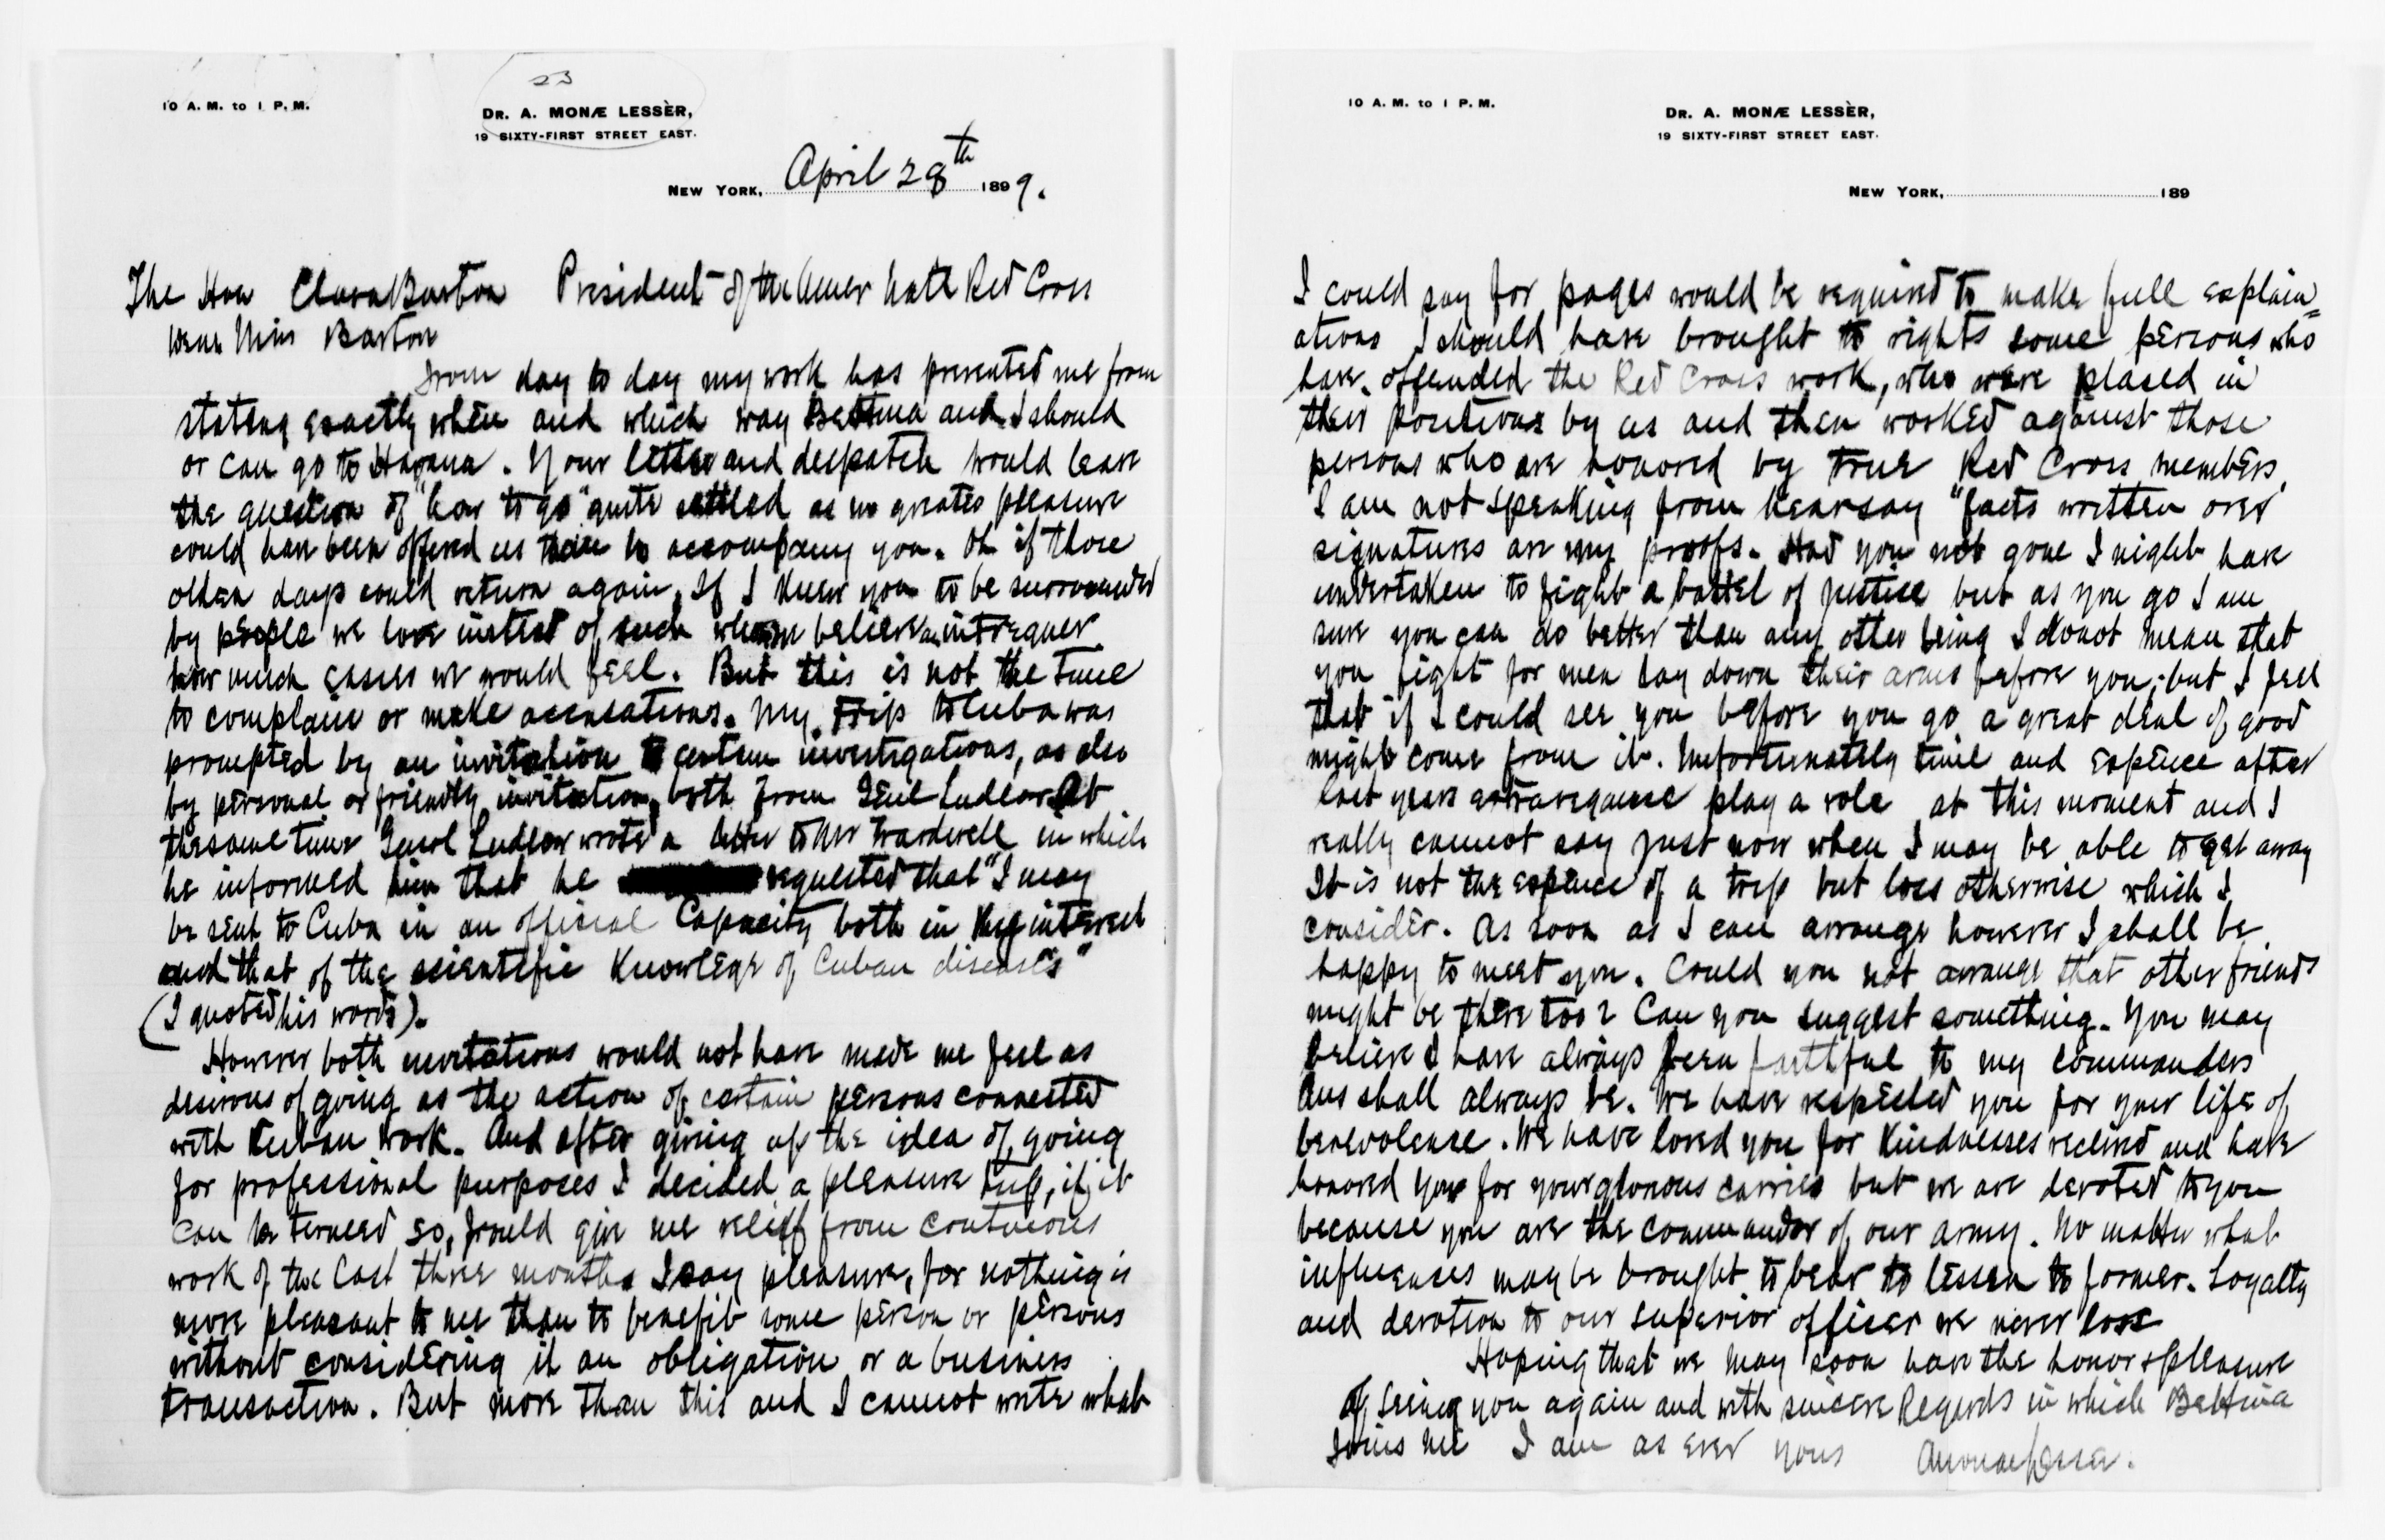 23
10 A. M. to 1 P. M.
DR. A. MONÆ LESSÈR,
19 SIXTY-FIRST STREET EAST.
NEW YORK, April 28th 1899.
The Hon Clara Barton President of the Amer Natl Red Cross
Dear Miss Barton
From day to day my work has prevented me from
stating exactly when and which way Bettina and I should
or can go to Havana. Your letter and despatch would leave
the question of "how to go" quite settled as no greater pleasure
could have been offered us than to accompany you. Oh if those
olden days could return again. If I knew you to be surrounded
by people we love instead of such whom we believe intreguer
how much easier we would feel. But this is not the time
to complain or make accusations. My trip to Cuba was
prompted by an invitation to certain investigations, as also
by personal or friendly invitation, both from Genl Ludlow At
the same time Genrl Ludlow wrote a letter to Mr Wardwell in which
he informed him that he requested that "I may
be sent to Cuba in an official Capacity both in the interest
and that of the scientific Knowlege of Cuban diseases"
(I quoted his words).
However both invitations would not have made me feel as
desirous of going as the action of certain persons connected
with Cuban work. And after giving up the idea of going
for professional purposes I decided a pleasure trip, if it
can be termed so, would give me relief from continous
work of the last three months I say pleasure, for nothing is
more pleasant to me than to benefit some person or persons
without considering it an obligation or a business
transaction. But more than this and I cannot write what
10 A. M. to 1 P. M.
DR. A. MONÆ LESSÈR,
19 SIXTY-FIRST STREET EAST.
NEW YORK, 189
I could say for pages would be required to make full explain=
ations I should have brought to rights some persons who
have offended the Red Cross work, who were plased in
their positions by us and then worked against those
persons who are honored by true Red Cross members.
I am not speaking from hearsay "facts written over
signatures are my proofs. Had you not gone I might have
undertaken to fight a battel of justice but as you go I am
sure you can do better than any other being I donot mean that
you fight for men lay down their arms before you, but I feel
that if I could see you before you go a great deal of good
might come from it. Unfortunately time and expence after
last years extravegance play a role at this moment and I
really cannot say just now when I may be able to get away
It is not the expence of a trip but loss otherwise which I
consider. As soon as I can arrange however I shall be
happy to meet you. Could you not arrange that other friends
might be there too? Can you suggest something. You may
believe I have always been faithful to my commanders
Ans shall always be. We have respected you for your life of
benevolense. We have loved you for Kindnesses received and have
honored you for your glorious carrier but we are devoted to you
because you are the commander of our army. No matter what
influenses may be brought to bear to lessen to former. Loyalty
and devotion to our superior officer we never lose
Hoping that we may soon have the honor & pleasure
of seeing you again and with sincere Regards in which Bettina
Joins me I am as ever yours AMonaeLesser.